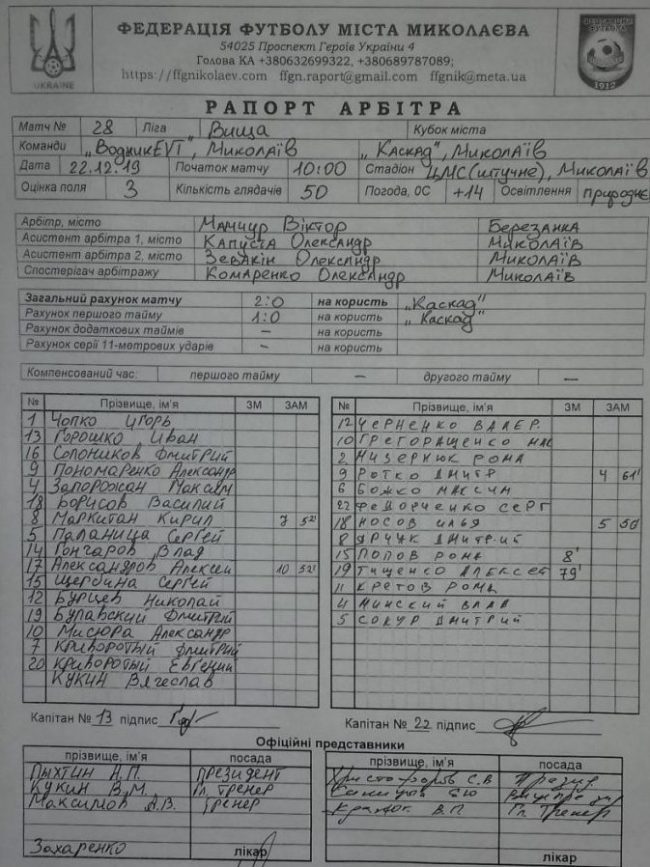 ФЕДЕРАЦІЯ ФУТБОЛУ МІСТА МИКОЛАЄВА
54025 Проспект Героїв України 4
Голова КА +380632699322, +380689787089;
https://ffgnikolaev.com ffgn.raport@gmail.com ffgnik@meta.ua
UKRAINE
1912
РАПОРТ АРБІТРА
Матч № 28 Ліга „Вища Кубок міста
Команди „ВодникEVT", Миколаїв „Каскад", Миколаїв
Дата 22.12.19 Початок матчу 10:00 Стадіон ЦМС(штучне), Миколаїв
Оцінка поля 3 Кількість глядачів 50 Погода, 0С +14 Освітлення природнє
Арбітр, місто Мамчур Віктор Березанка
Асистент арбітра 1, місто Капуста Олександр Миколаїв
Асистент арбітра 2, місто Зевакін Олександр Миколаїв
Спостерігач арбітражу Комаренко Олександр Миколаїв
Загальний рахунок матчу 2:0 на користь „Каскад"
Рахунок першого тайму 1:0 на користь „Каскад"
Рахунок додаткових таймів – на користь
Рахунок серії 11-метрових ударів – на користь
Компенсований час: першого тайму – другого тайму –
№ Прізвище, ім'я ЗМ ЗАМ
1 Чопко Игорь
13 Горошко Иван
16 Солоников Дмитрий
9 Пономаренко Александр
4 Запорожан Максим
18 Борисов Василий
8 Маркитан Кирил 7 52'
5 Паланица Сергей
14 Гончаров Влад
17 Александров Алексей 10 52'
15 Щербина Сергей
12 Бурцев Николай
19 Булавский Дмитрий
10 Мисюра Александр
7 Криворотый Дмитрий
20 Криворотый Евгений
Кукин Вячеслав
Капітан № 13 підпис
№ Прізвище, ім'я ЗМ ЗАМ
12 Черненко Валер.
10 Грегоращенко Мак
2 Мизернюк Рома
9 Ротко Дмитр 4 61'
6 Божко Максим
22 Федорченко Серг
18 Носов Илья 5 50'
8 Ярчук Дмитрий
15 Попов Рома 8'
19 Тищенко Алексей 79'
11 Кретов Рома
4 Минский Влад
5 Сокур Дмитрий
Капітан № 22 підпис
Офіційні представники
прізвище, ім'я посада
Пыхтин А.П. Президент
Кукин В.М. Гл. тренер
Максимов А.В. Тренер
Захаренко лікар
прізвище, ім'я посада
Христофоров С.В
В.П Гл тренер
лікар